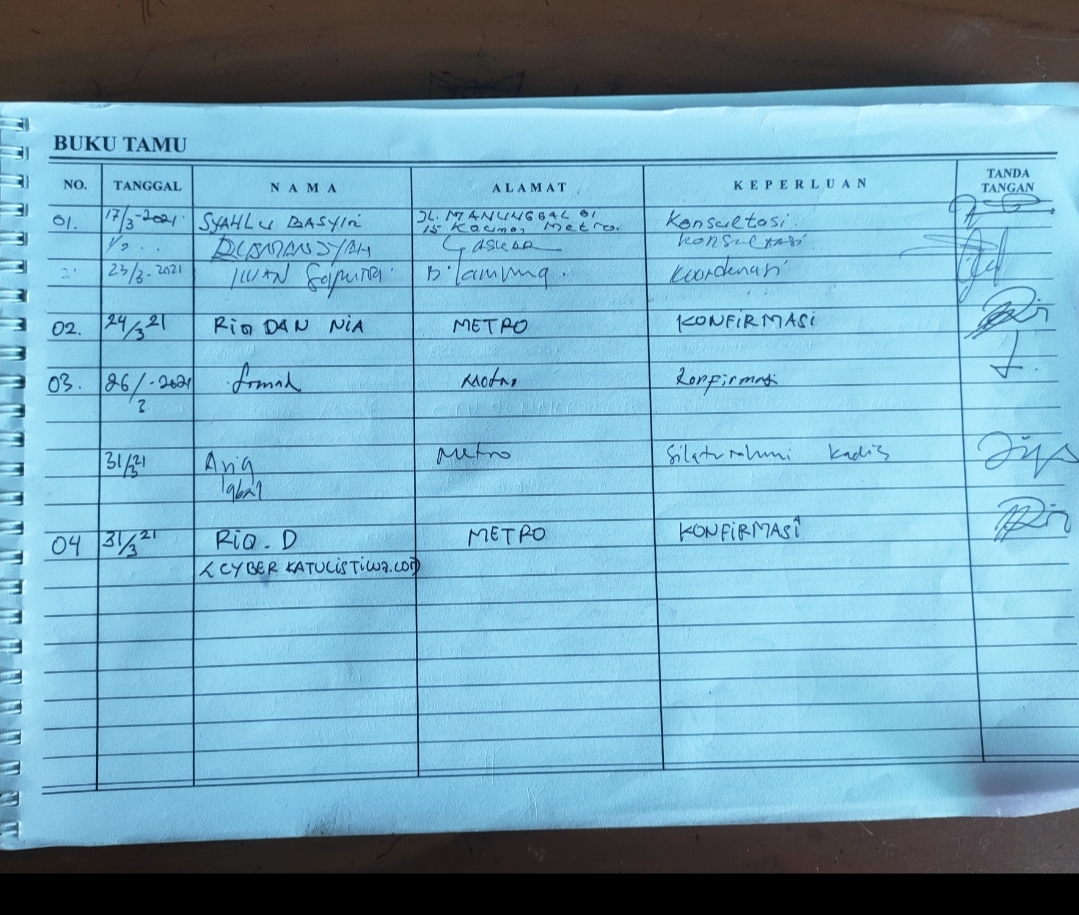 BUKU TAMU
NO. TANGGAL NAMA ALAMAT KEPERLUAN TANDA TANGAN
01. 17/3-2021 SYAHLU BASYIR JL. MANUNGGAL 01 Konsultasi.
15 Metro.
Konsultasi
23/3-2021 IWAN Saputra B. Lampung. Koordinasi
02. 24/3 21 RIO DAN NIA METRO KONFIRMASI
03. 26/-2021 Metro Konfirmasi
3
31/3 21 Metro Silaturahmi Kadis
Iqbal
04 31/3 21 RIO. D METRO KONFIRMASI